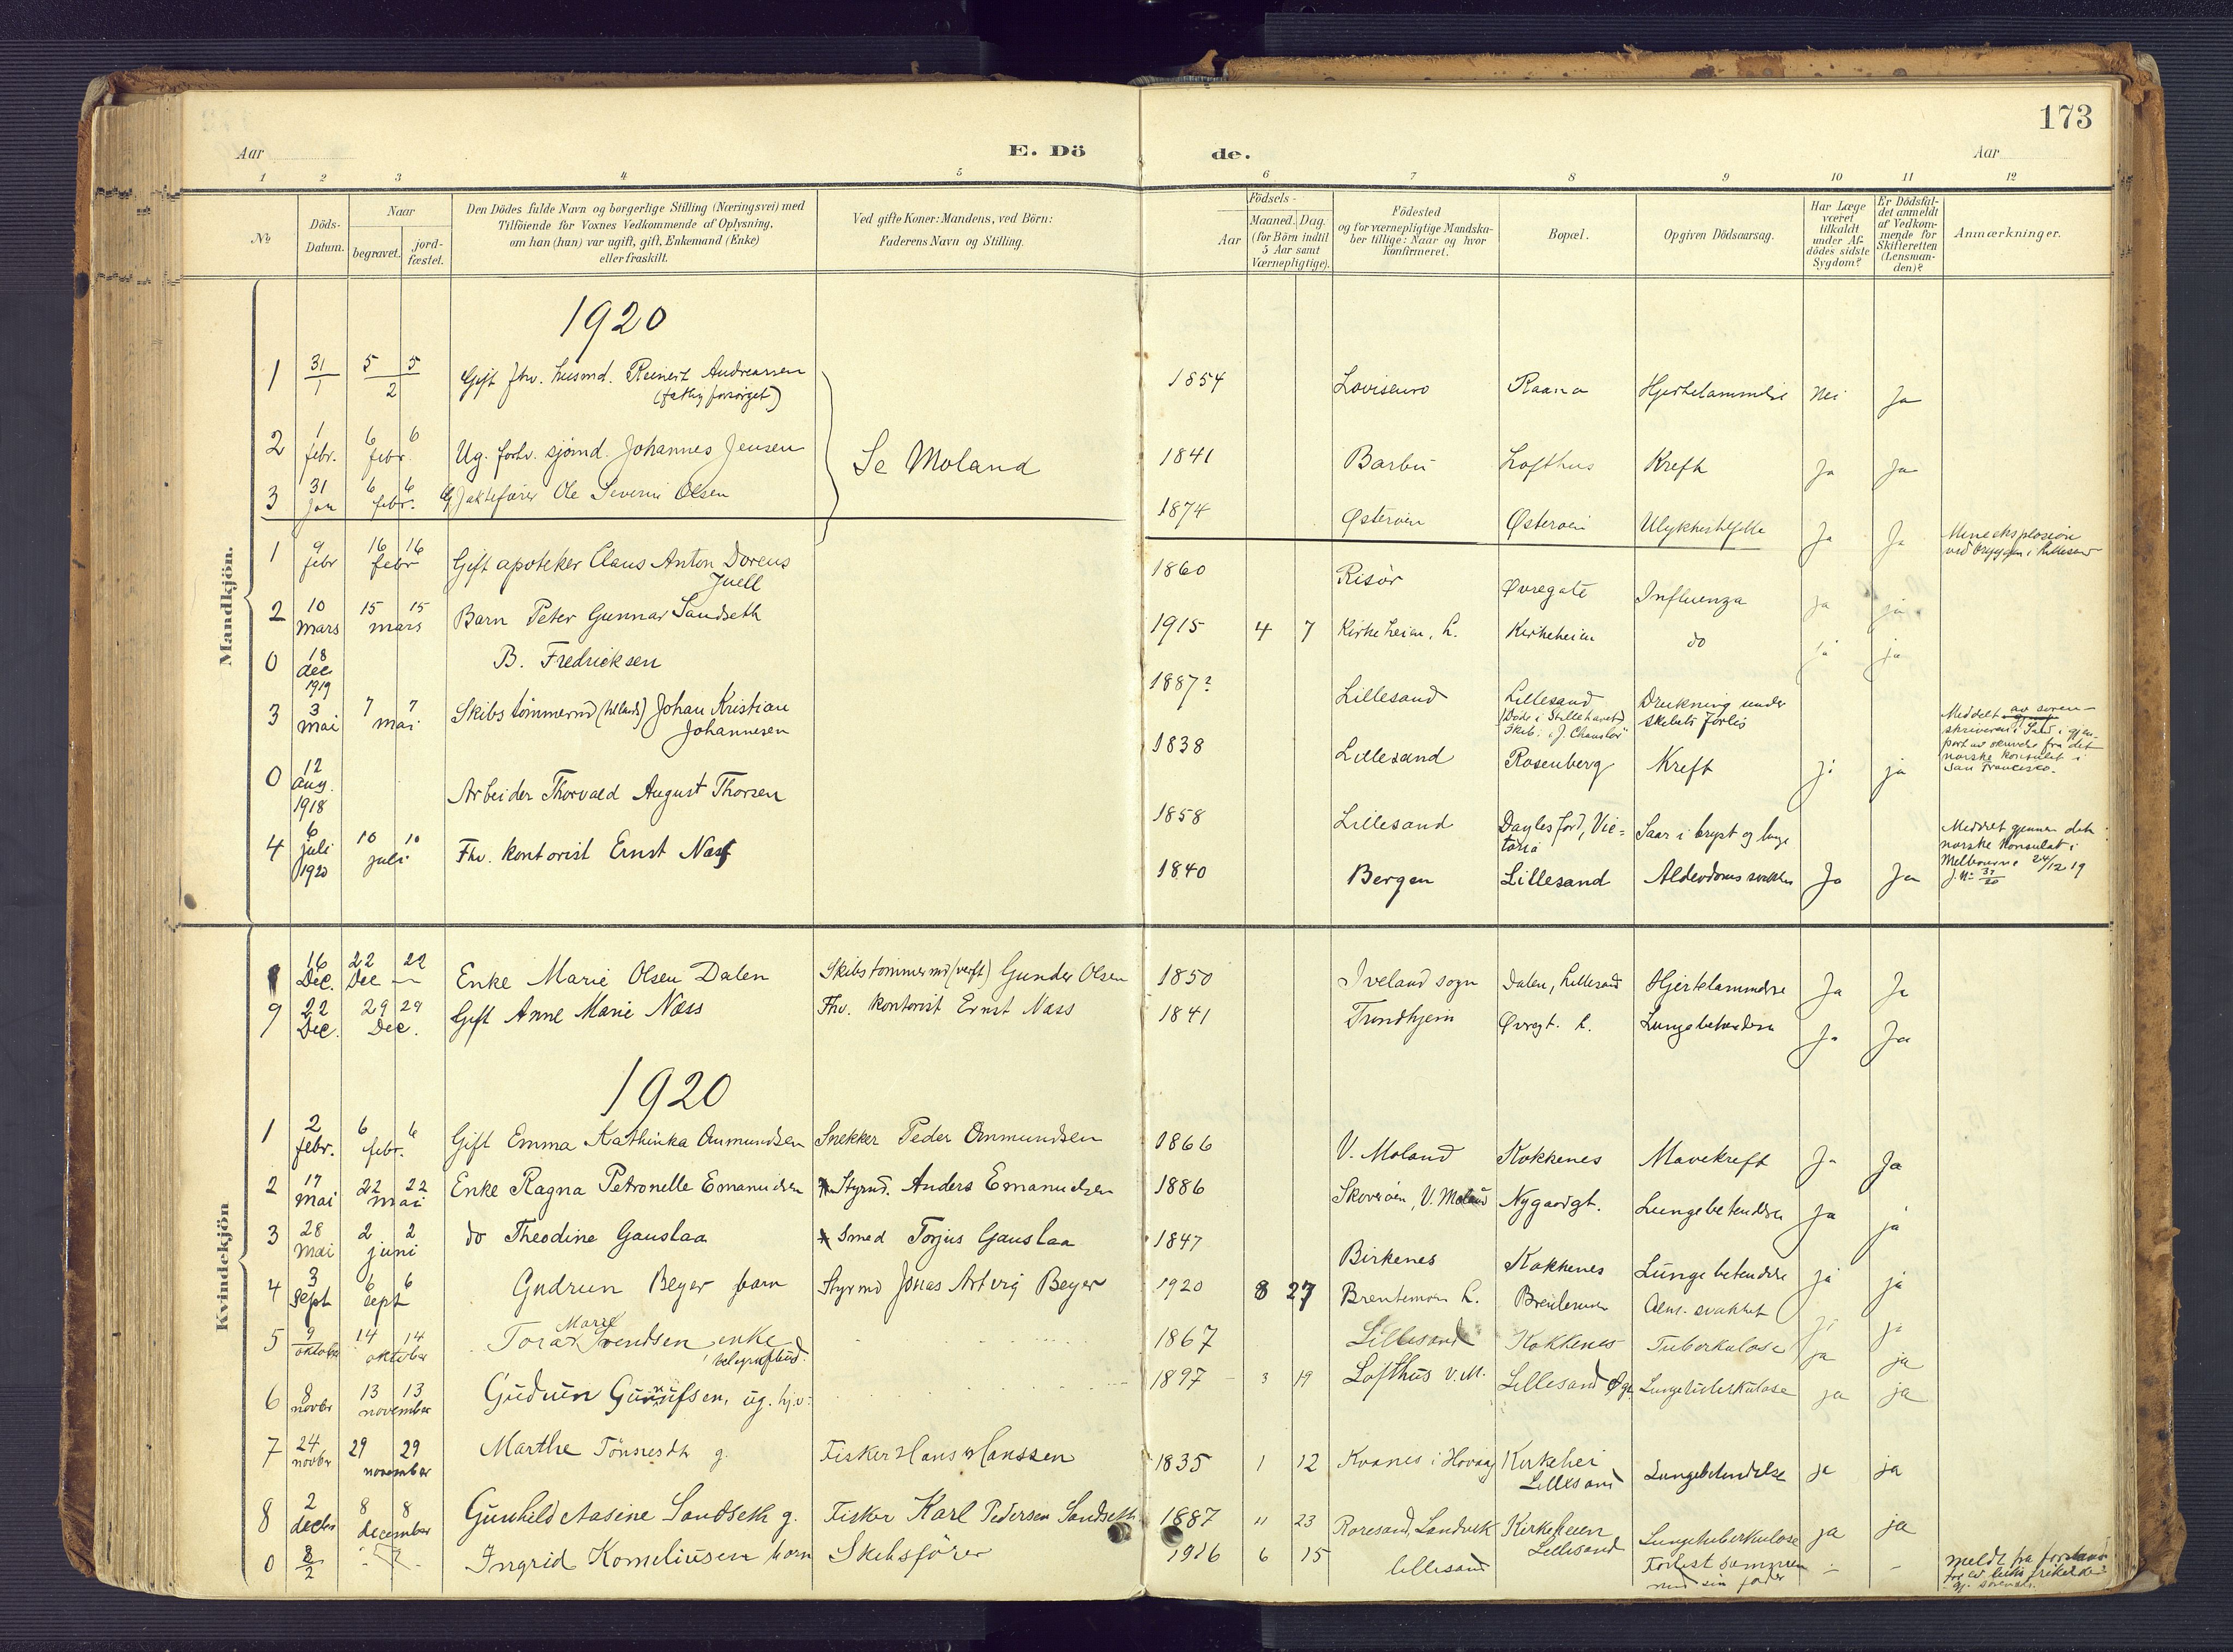 173
Aar
E. Dö
de.
Aar
1 2 3 4 5 6 7 8 9 10 11 12
№
Döds-
Datum.
Naar
begravet.
jord-
fæstet.
Den Dödes fulde Navn og borgerlige Stilling (Næringsvei) med
Tilföiende for Voxnes Vedkommende af Oplysning,
om han (hun) var ugift, gift, Enkemand (Enke)
eller fraskilt.
Ved gifte Koner: Mandens, ved Börn:
Faderens Navn og Stilling.
Födsels-
Aar
Maaned. Dag.
(for Börn indtil
5 Aar samt
Værnepligtige).
Födested
og for værnepligtige Mandska-
ber tillige: Naar og hvor
konfirmeret.
Bopæl.
Opgiven Dödsaarsag.
Har Læge
været
tilkaldt
under Af-
dödes sidste
Sygdom?
Er Dödsfal-
det anmeldt
af Vedkom-
mende for
Skifteretten
(Lensman-
den)?
Anmærkninger.
Mandkjön.
1920
1 31/1 5 5/2 Gift fhv. husmd. Reinert Andreassen 1854 Raana Hjertelammelse Nei Ja
2 1 febr. 6 6 febr. Ug. forhv. sjömd. Johannes Jensen Se Moland 1841 Barbu Lofthus Kreft Ja Ja
3 31 Jan 6 6 febr. G Jaktefører Ole Severin Olsen 1874 Østerøen Østerøen Ulykkestilfelle Ja Ja Mineeksplosion
ved bryggen i Lillesand
1 9 febr 16 16 febr Gift apoteker Claus Anton Doreus
Juell 1860 Risör Øvregate Influenza ja ja
2 10 mars 15 15 mars Barn Peter Gunnar Sandseth 1915 4 7 Kirkeheien, L. Kirkeheien do ja ja
0 18 dec 1919 B. Fredricksen 1887? Lillesand Lillesand
(Døde i Stillehavet)
Drukning under
skibets forlis
Meddelt av soren-
skriveren i Sand i gjen-
part av skrivelse fra det
norske konsulat i
San Francisco.
3 3 mai 7 7 mai Skibstömmermd Johan Kristian
Johannesen 1838 Lillesand Rosenberg Kreft ja ja
0 12 aug. 1918 Arbeider Thorvald August Thorsen 1858 Lillesand Daylesford, Vic=
toria Saar i bryst og lunge
Meddelt gjennem det
norske Konsulat i
Melbourne 24/12 19
4 6 juli 1920 10 10 juli Fhv. kontorist Ernst Næss 1840 Bergen Lillesand Alderdomssvakhet Ja Ja
Kvindekjön
16 Dec. 22 22 Dec Enke Marie Olsen Dalen Skibstömmermd (verft) Gunder Olsen 1850 Iveland sogn Dalen, Lillesand Hjertelammelse Ja Ja
9 22 Dec. 29 29 Dec. Gift Anne Marie Næss Fhv. kontorist Ernst Næss 1841 Trondhjem Øvregt. L. Lungebetendelse Ja Ja
1920
1 2 febr. 6 6 febr. Gift Emma Kathinka Onmundsen Snekker Peder Onmundsen 1866 V. Moland Kokkenes Mavekreft Ja Ja
2 17 mai 22 22 mai Enke Ragna Petronelle Emanuelsen Styrmd. Anders Emanuelsen 1886 Skoverøen, V. Moland Nygaardgt. Lungebetendelse Ja ja
3 28 mai 2 2 juni do Theodine Gauslaa Smed Torjus Gauslaa 1847 Birkenes Kokkenes Lungebetendelse ja ja
4 3 Sept 6 6 Sept Gudrun Beyer barn Styrmd Jonas Artvig Beyer 1920 8 27 Brentemoen L. Alm. svakhet ja ja
5 9 oktober 14 14 oktober Tora Marie Svendsen enke
telegrafbud. 1867 Lillesand Kokkenes Tuberkulose ja ja
6 8 novbr 13 13 november Gudrun Gunnufsen, ug. 1897 3 19 Lofthus V.M. Lillesand Lungetuberkulose ja ja
7 24 novbr 29 29 november Marthe Tönnesdtr g. Fisker Hans Hanssen 1835 1 12 Kvanes i Hövaag Kirkehei
Lillesand Lungebetendelse ja ja
8 2 decbr 8 8 december Gunhild Aasine Sandseth g. Fisker Karl Pedersen Sandseth 1887 11 23 Roresand, Landvik Kirkeheien
Lillesand Lungetuberkulose ja ja
0 8/2 Ingrid Korneliusen barn Skibsförer 1916 6 15 Lillesand Forlist sammen
med sin fader